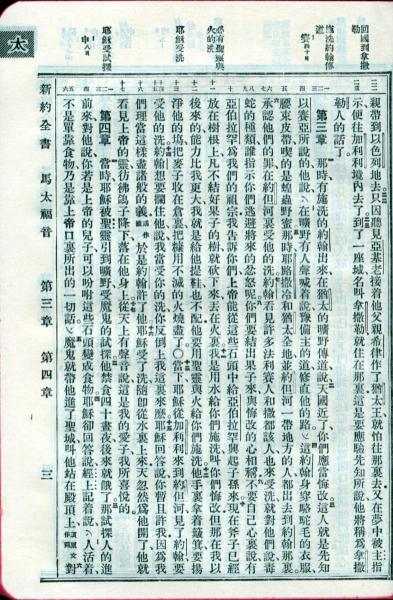 太
回國到拿撒勒
施洗約翰傳道
必有聖靈與火的洗
耶穌受洗
耶穌受試探
親帶到以色列地去只因聽見亞基老接着他父親希律作了猶太王就怕往那裏去又在夢中被主指
示便往加利利境內去了到了一座城名叫拿撒勒就住在那裏這是要應驗先知所說他將稱爲拿撒
勒人的話了
第三章 那時有施洗的約翰出來在猶太的曠野傳道說天國近了你們應當悔改這人就是先知
以賽亞所說的他說在曠野有人聲喊着說豫備主的道修直他的路這約翰身穿駱駝毛的衣服
腰束皮帶喫的是蝗蟲野蜜那時耶路撒冷和猶太全地並約但河一帶地方的人都出去到約翰那裏
承認他們的罪在約但河裏受他的洗約翰看見許多法利賽人和撒都該人也來受洗就對他們說毒
蛇的種類誰指示你們逃避將來的忿怒呢你們要結出果子來與悔改的心相稱不要自己心裏說有
亞伯拉罕爲我們的祖宗我告訴你們上帝能從這些石頭中給亞伯拉罕興起子孫來現在斧子已經
放在樹根上凡不結好果子的樹就砍下來丟在火裏我是用水給你們施洗叫你們悔改但那在我以
後來的能力比我更大我就是給他提鞋也不配他要用聖靈與火給你們施洗他手裏拿着簸箕要揚
淨他的場把麥子收在倉裏把糠用不滅的火燒盡了〇當下耶穌從加利利來到約但河見了約翰要
受他的洗約翰想要攔住他說我當受你的洗你反倒上我這裏來麼耶穌回答說你暫且許我因爲我
們理當這樣盡諸般的義於是約翰許了他耶穌受了洗隨即從水裏上來天忽然爲他開了他就
看見上帝的靈彷彿鴿子降下落在他身上從天上有聲音說這是我的愛子我所喜悅的
第四章 當時耶穌被聖靈引到曠野受魔鬼的試探他禁食四十晝夜後來就餓了那試探人的進
前來對他說你若是上帝的兒子可以吩咐這些石頭變成食物耶穌卻回答說經上記着說人活着
不是單靠食物乃是靠上帝口裏所出的一切話魔鬼就帶他進了聖城叫他站在殿頂上對
新約全書 馬太福音 第三章 第四章 三